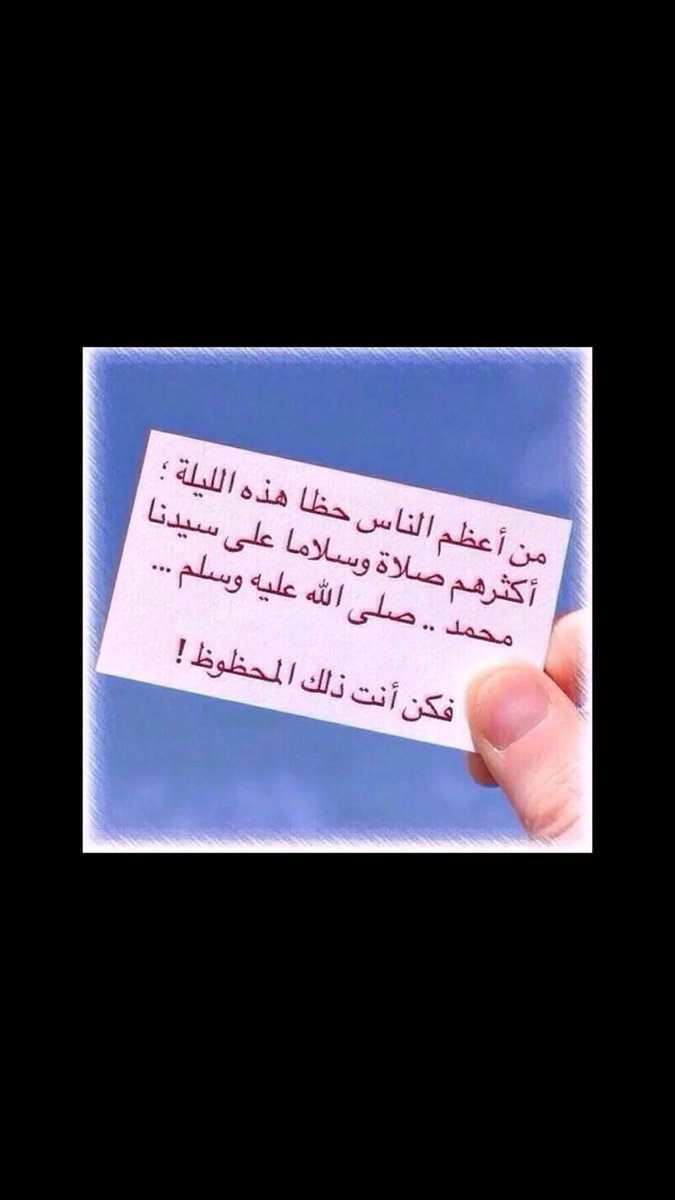 من أعظم الناس حظا هذه الليلة ؛
أكثرهم صلاة وسلاما على سيدنا
محمد .. صلى الله عليه وسلم ...
فكن أنت ذلك المحظوظ !